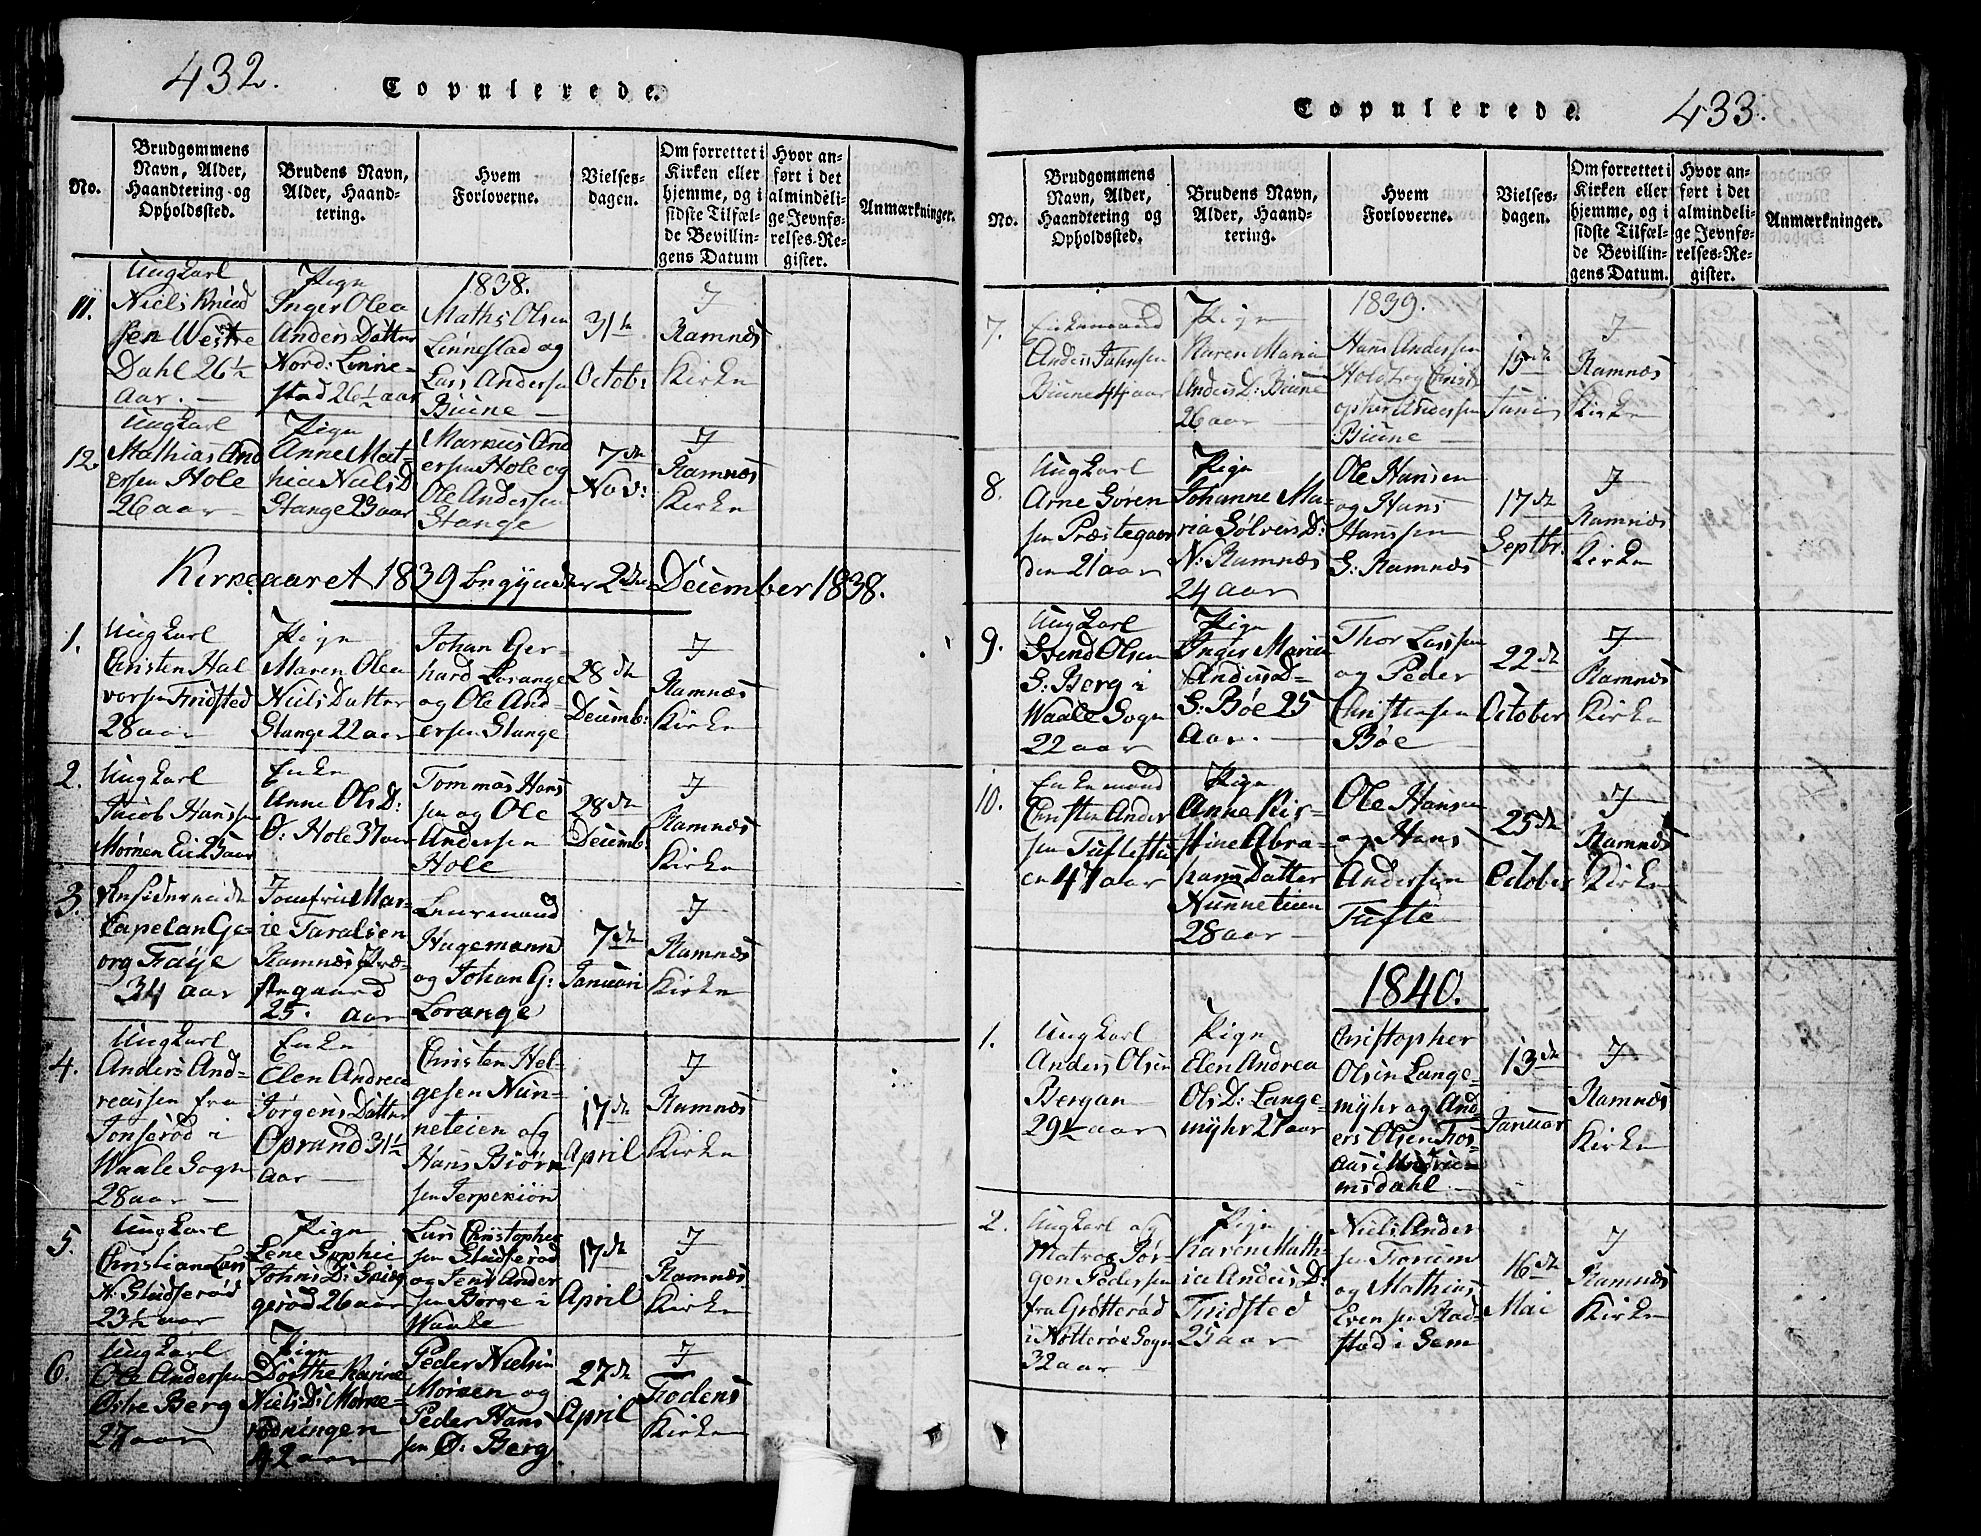 432.
Copulerede.
No.
Brudgommens
Navn, Alder,
Haandtering og
Opholdssted.
Brudens Navn,
Alder, Haand-
tering.
Hvem
Forloverne.
Vielses-
dagen.
Om forrettet i
Kirken eller
hjemme, og i
sidste Tilfæl-
de Bevillin-
gens Datum
Hvor an-
ført i det
almindeli-
ge Jevnfø-
relses-Re-
gister.
Anmærkninger.
11.
Ungkarl
Niels Knud
sen Westre
Dahl 26½
aar. -
Pige
Inger Olea
Anders Datter
Nord: Linne-
stad 26½ aar
1838.
Mathis Olsen
Linnestad og
Lars Andersen
Biune -
31te
Octobr
I
Ramnæs
Kirke
12.
Ungkarl
Mathias And
ersen Hole
26 aar -
Pige
Anne Mat-
hia Niels D
Stange 23 aar
Markus And
ersen Hole og
Ole Andersen
Stange
7de
Nov:
I
Ramnæs
Kirke
Kirkeaaret 1839 begynder 2den December 1838.
1.
Ungkarl
Christen Hal
vorsen Firidsted
28 aar
Pige
Maren Olea
Niels Datter
Stange 22 aar
Johan Ger-
hard Lorange
og Ole And-
ersen Stange
28de
Decemb:
I
Ramnæs
Kirke
2.
Ungkarl
Jacob Hanssen
Mørken Eie 23 aar
Enke
Anne Ols D:
Ø: Hole 37 aar
Tommas Hans
sen og Ole
Andersen
Hole
28de
Decemb:
I
Ramnæs
Kirke
3.
Residerende
Capelan Ge-
org Faye
34 aar
Jomfrue Mar-
ie Paralsen
Ramnæs Præ-
stegaard
25. aar
Leursmand
Hagemann
og Johan G:
Lorange
7de
Januari
I
Ramnæs
Kirke
4.
Ungkarl
Anders And-
reassen fra
Jonserød i
Waale Sogn
28 aar -
Enke
Elen Andrea
Jørgens Datter
Oprand 31½
aar -
Christen Hel-
gesen Nun-
neteien og
Hans Biørn
sen Jerpekiøn
17de
April
I
Ramnæs
Kirke
5.
Ungkarl
Christian Lars
N: Sludserød
23½ aar
Pige
Lene Sophie
Johns D:
gerød 26 aar
Lars Christopher
sen Sludserød
og Jens Ander
sen Borge i
Waale
17de
April
I
Ramnæs
Kirke
6.
Ungkarl
Ole Andersen
Østre Berg
27 aar
Pige
Dorthe Karine
Niels D: Mørke-
rødningen
42 aar
Peder Nielsen
Mørken og
Peder Hans
sen Ø: Berg
27de
April
I
Fodens
Kirke
Copulerede.
433.
No.
Brudgommens
Navn, Alder,
Haandtering og
Opholdssted.
Brudens Navn,
Alder, Haand-
tering.
Hvem
Forloverne.
Vielses-
dagen.
Om forrettet i
Kirken eller
hjemme, og i
sidste Tilfæl-
de Bevillin-
gens Datum.
Hvor an-
ført i det
almindeli-
ge Jevnfø-
relses-Re-
gister.
Anmærkninger.
7.
Enkemand
Anders Johnsen
Biune 44 aar
Pige
Karen Maria
Anders D: Biune
26 aar -
1839.
Hans Andersen
Holdt og Christ
opher Andersen
Biune -
15de
Juni
I
Ramnæs
Kirke
8.
Ungkarl
Arne Søren
sen Præstegaar
den 21 aar
Pige
Johanne Ma-
ria Sølvers D:
N: Ramnæs
24 aar
Ole Hansen
og Hans
Hanssen
S: Ramnæs
17de
Septbr.
I
Ramnæs
Kirke
9.
Ungkarl
Svend Olsen
S: Berg i
Waale Sogn
22 aar
Pige
Inger Maria
Anders D-
S: Bøe 25
Aar. -
Thor Larssen
og Peder
Christensen
Bøe
22de
October
I
Ramnæs
Kirke
10.
Enkemand
Christen Ander
sen Tufteeie
en 47 aar
Pige
Anne Kir-
stine Abra-
hams Datter
Nunneteien
28 aar -
Ole Hansen
og Hans
Andersen
Tufte
25de
October
I
Ramnæs
Kirke
1840.
1.
Ungkarl
Anders Olsen
Bergan -
29½ aar
Pige
Elen Andrea
Ols D: Lange-
myhr 27 aar
Christopher
Olsen Lange-
myhr og And
ers Olsen Fos-
aas i
msdahl
13de
Januar
I
Ramnæs
Kirke
2.
Ungkarl og
Matros Jør-
gen Pedersen
fra Grøtterød
i Nøtterøe Sogn
32 aar
Pige
Karen Math-
ia Anders D:
Firidsted
25 aar
Niels Ander
sen Forum
og Mathias
Evensen Rad-
stad i Sem
16de
Mai
I
Ramnæs
Kirke